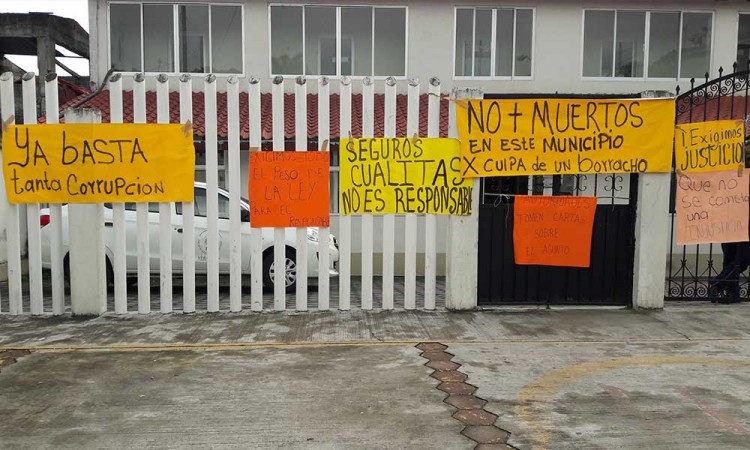 YA BASTA
tanta CORRUPCION
EXIGIMOS TODO
EL PESO DE
LA LEY
PARA EL
RESPONSABLE
SEGUROS
CUALITAS
NO ES RESPONSABLE
NO + MUERTOS
EN ESTE MUNICIPIO
X CULPA DE UN borracho
TOMEN CARTAS
SOBRE
EL ASUNTO
Exigimos
JUSTICIO
QUE NO
SE COMETA
UNA
INJUSTICIA